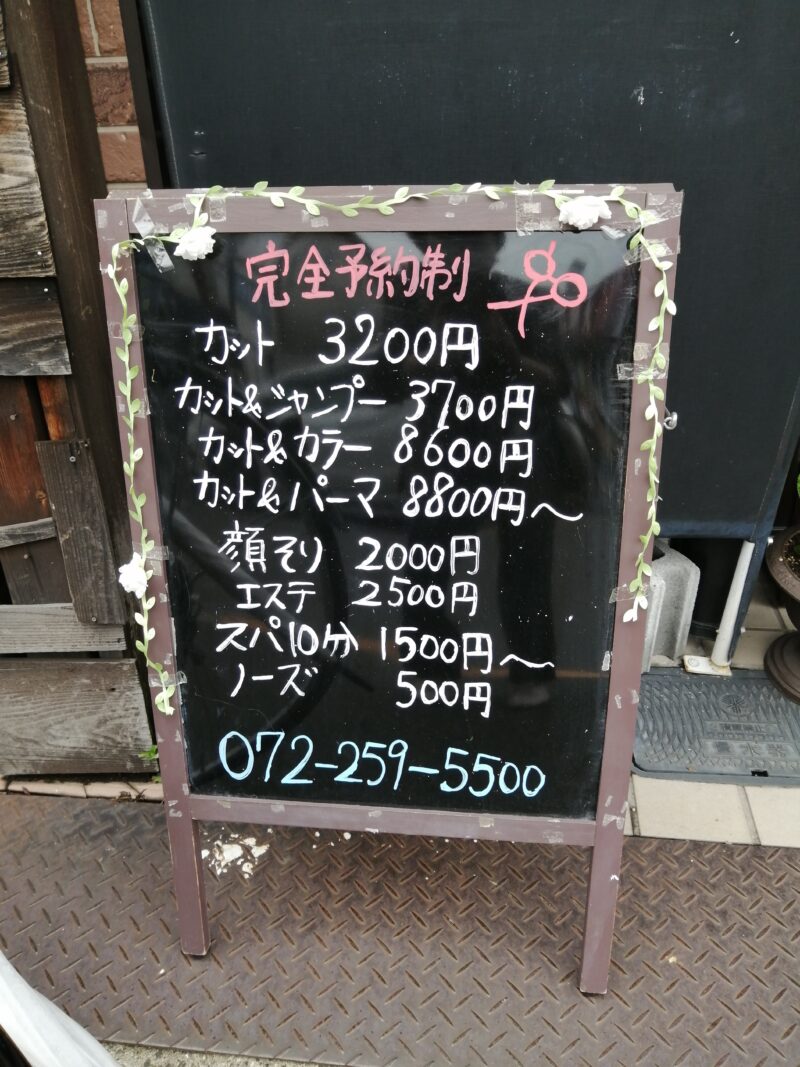 完全予約制
カット 3200円
カット&シャンプー 3700円
カット&カラー 8600円
カット&パーマ 8800円〜
顔そり 2000円
エステ 2500円
スパ10分 1500円〜
ノーズ 500円
072-259-5500